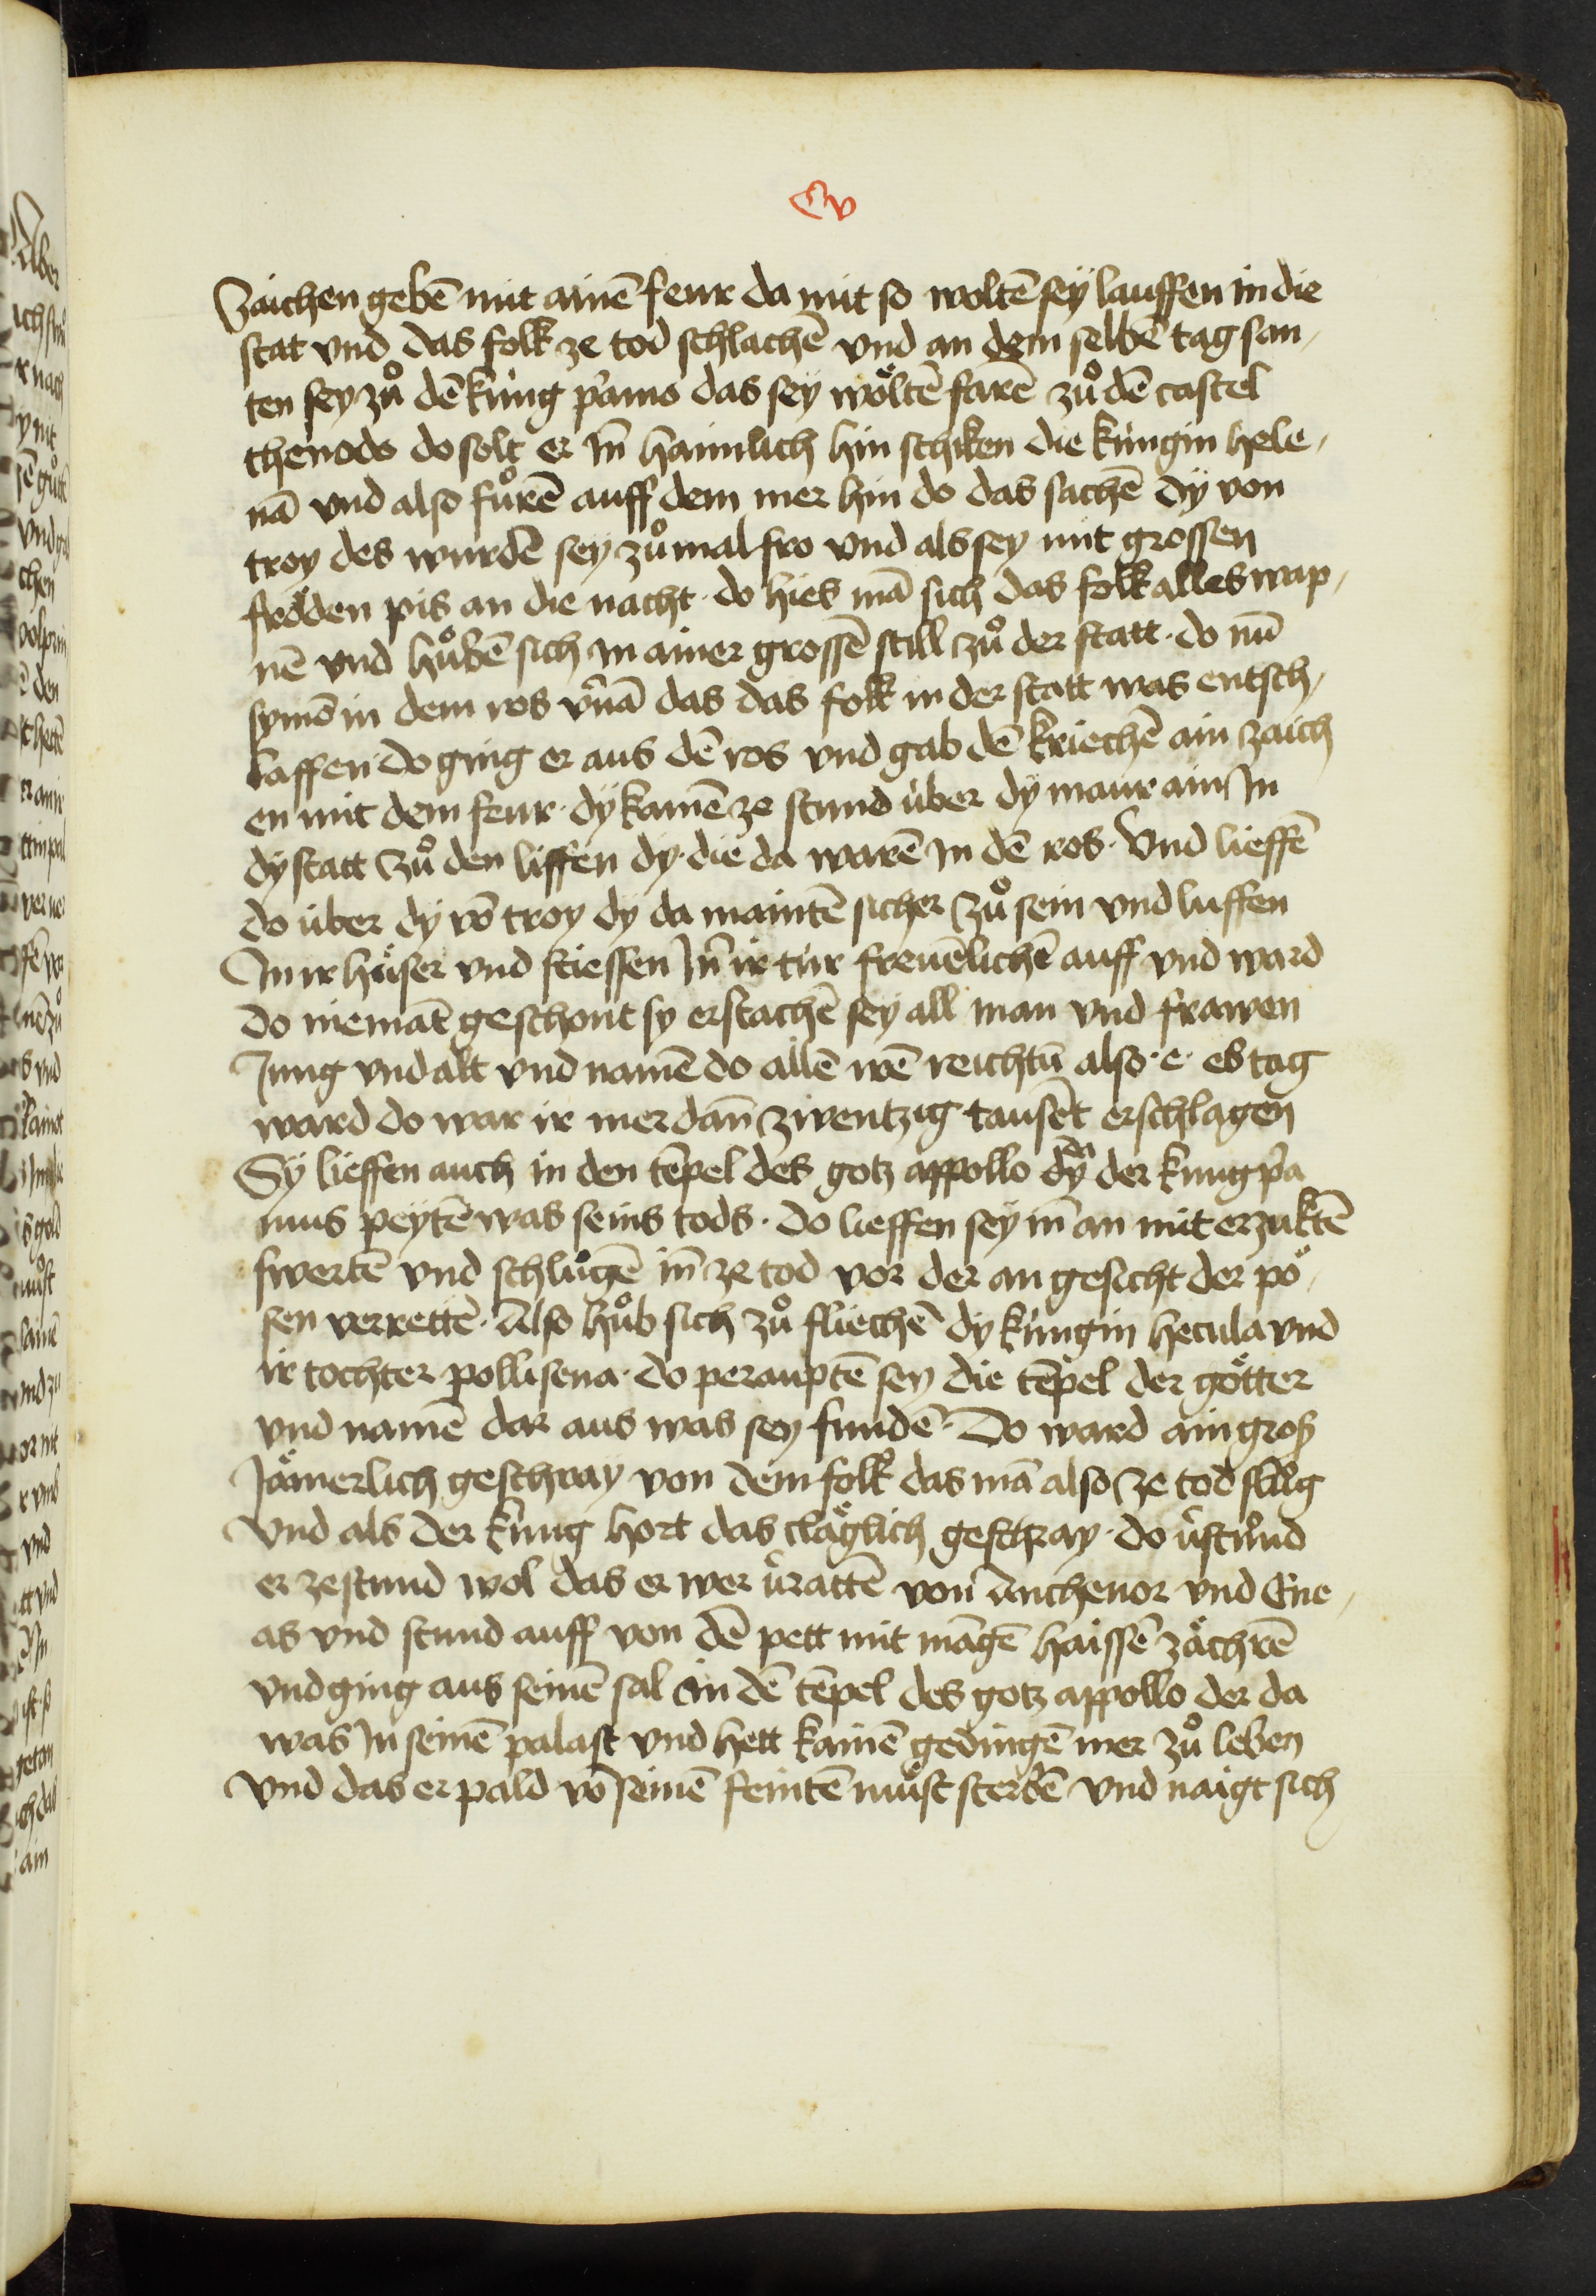 Cv
Zaichen gebē mit ainē feur da mit so woltē seÿ lauffen in die
stat vnd das folk ze tod schlachē vnd an dem selbē tag san,
ten sey zů dē kùng p̄amo das seÿ wöltē farē zů dē castel
thenodo do solt er Jn̄ haimlich hin schiken die kùngin hele,
nā vnd also fůrē auff dem mer hin do das sachē dÿ von
troy des wurdē sey zů mal fro vnd als sey mit grossen
fröden pis an die nacht · do hies mā sich das folk alles wap,
nē vnd hůbē sich in ainer grossē still zů der statt · do nū
symō in dem ros v̄nā das das folk in der statt was entsch,
laffen do ging er aus dē ros vnd gab dē kriechē ain zaich
en mit dem feur · dÿ kamē ze stund ùber dÿ maur ain Jn
dÿ statt Zů den liffen dy · die da warē Jn dē ros · Vnd lieffē
do ùber dÿ vō troy dy da maintē sicher Zů sein vnd luffen
Jn ir häser vnd stiessen Jn̄ ir tùr freuēlichē auff vnd ward
do niemāt geschont sy erstachē sey all man vnd frawen
Jung vnd alt vnd namē do allē irē reichtū also · e · es tag
ward do war ir mer dan̄ zwentzig tausēt erschlagen
Sÿ lieffen auch in den tēpel des gotz appollo dÿ da der kung p̄a
mus peÿtē was seins tods · do lieffen seÿ in̄ an mit erzuktē
swertē vnd schlůgē in̄ ze tod vor der an gesicht der pö,
sen verrettē · Also hůb sich zů fliechē dy kùngin hecula vnd
ir tochter pollisena · do perauptē sey die tēpel der götter
vnd namē dar aus was sey fundē · Do ward ain groß
Jämerlich geschray von dem folk das mā also ze tod slůg
Vnd als der kùng hort das cläglich geschray · do v̄stůnd
er zestund wol das er wer v̄rattē von Anthenor vnd Ene,
as vnd stund auff von dē pett mit māgē haissē zächrē
vnd ging aus seinē sal in dē tēpel des gotz appollo der da
was Jn seinē palast vnd hett kainē gedingē mer zů leben
Vnd das er pald vō seinē feintē můst sterbē vnd naigt sich